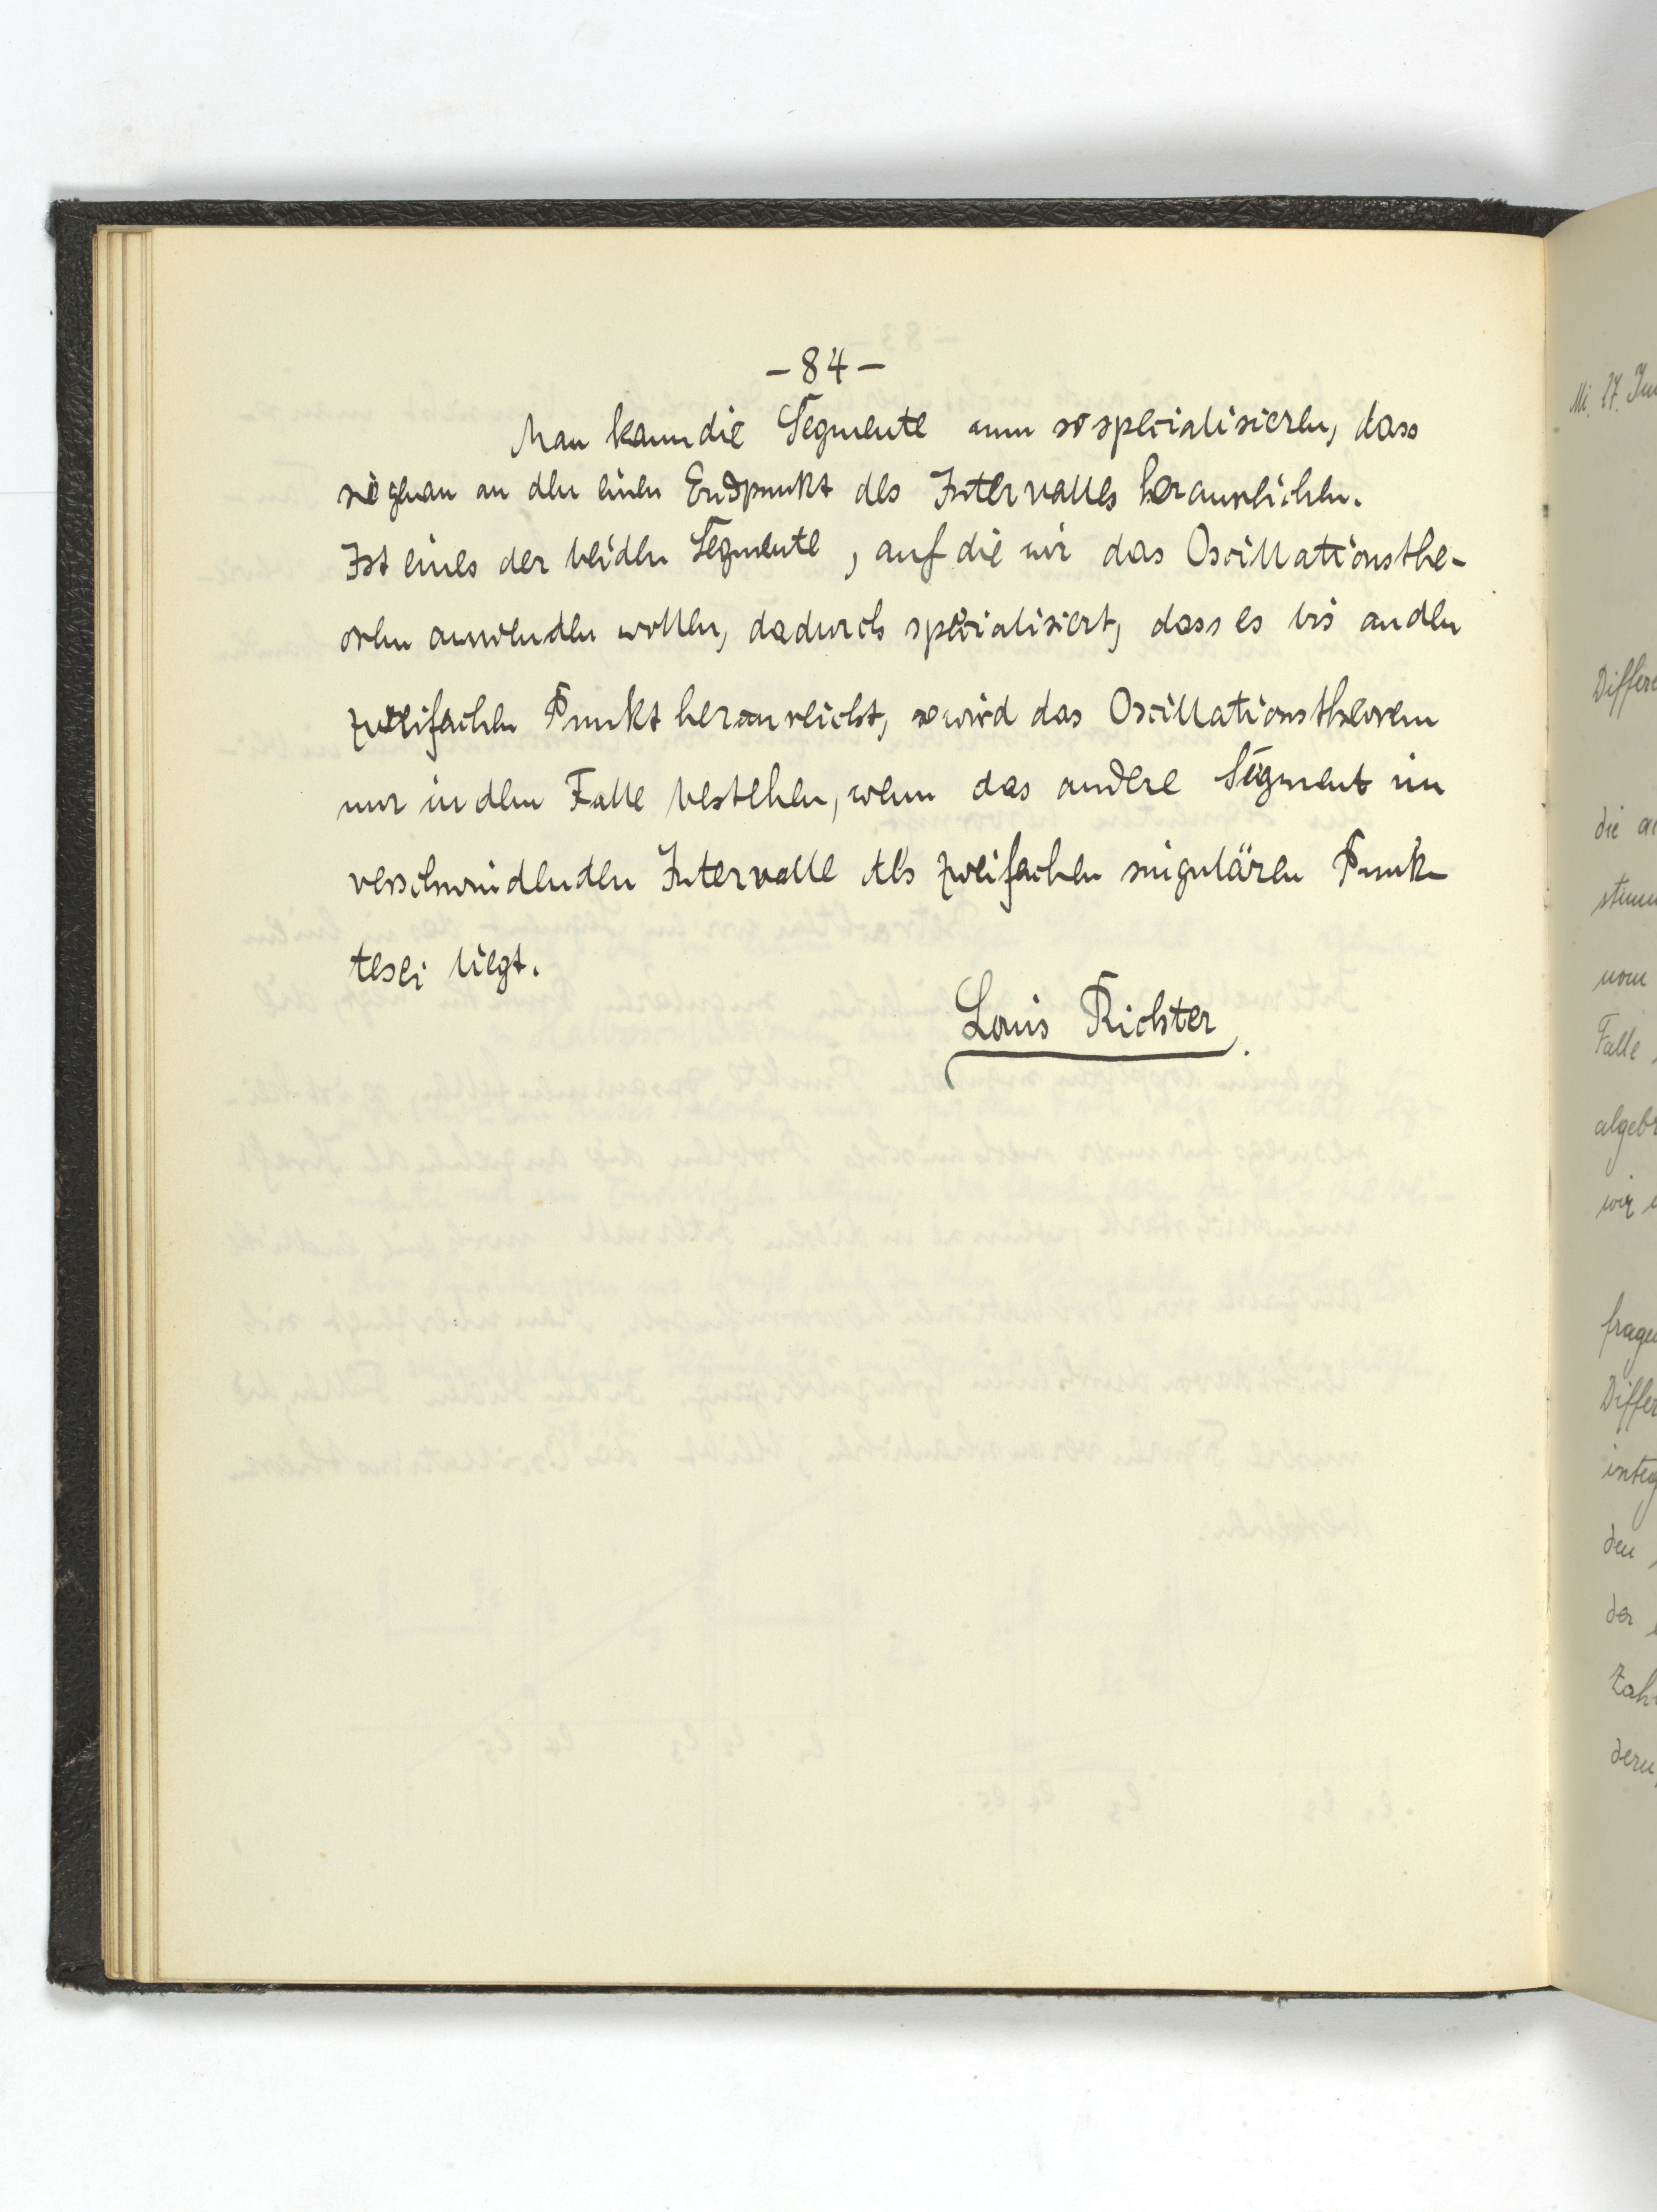 - 84 -
Man kann die Segmente nun so specialisieren, dass
sie genau an den einen Endpunkt des Intervalles heranreichen.
Ist eines der beiden Segmente, auf die wir das Oscillationsthe-
orem anwenden wollen, dadurch specialisiert, dass es bis an den
zweifachen Punkt heranreicht, so wird das Oscillationstheorem
nur in dem Falle bestehen, wenn das andere Segment im
verschwindenden Intervalle des zweifachen singulären Punk-
tes ei liegt.
Louis Richter.
Mi. 17. Jun
Differe
die
stimm
vom
Falle
algebr
wir
frage
Differ
integ
den
der
Zahl
deren